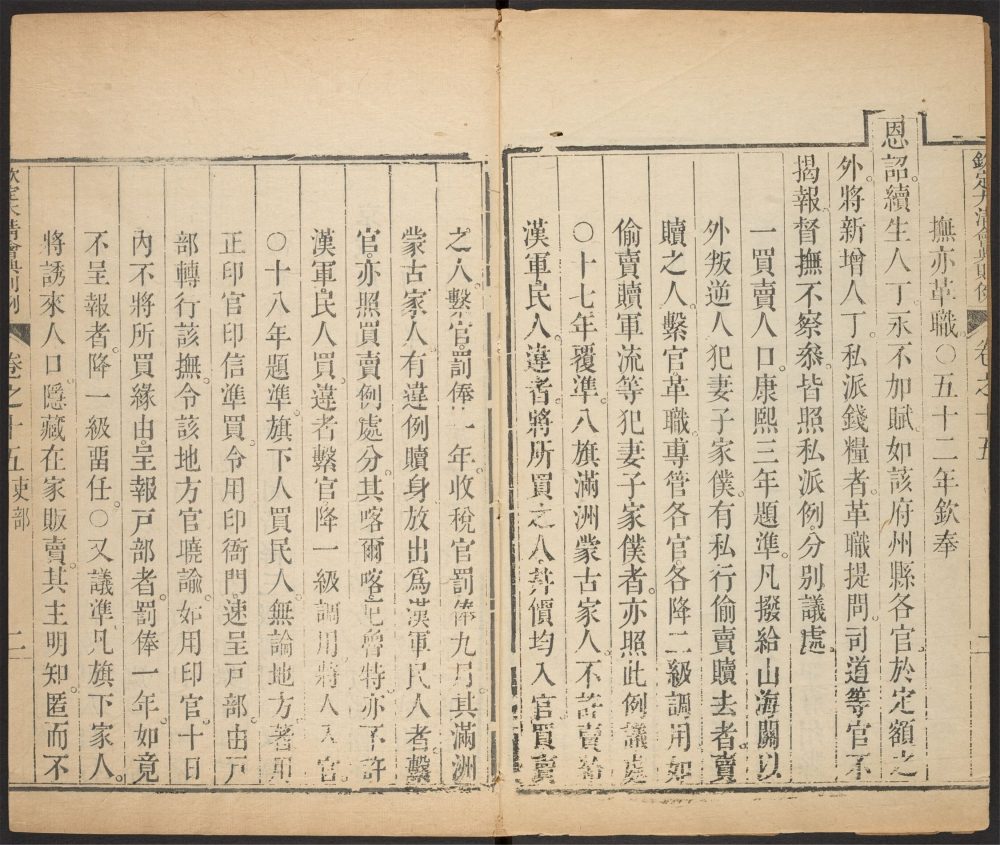 欽定大清會典則例 卷之 五 二
撫亦革職○五十二年欽奉
恩詔續生人丁永不加賦如該府州縣各官於定額之
外將新增人丁私派錢糧者革職提問司道等官不
揭報督撫不察叅皆照私派例分別議處
一買賣人口康熙三年題準凡撥給山海關以
外叛逆人犯妻子家僕有私行偷賣贖去者賣
贖之人繫官革職專管各官各降二級調用如
偷賣贖軍流等犯妻子家僕者亦照此例議處
○十七年覆準八旗滿洲蒙古家人不許賣給
漢軍民人違者將所買之人幷價均入官買賣
之人繫官罰俸一年收稅官罰俸九月其滿洲
蒙古家人有違例贖身放出爲漢軍民人者繫
官亦照買賣例處分其喀爾喀厄魯特亦不許
漢軍民人買違者繫官降一級調用將人入官
○十八年題準旗下人買民人無論地方著用
正印官印信準買令用印衙門速呈戸部由戸
部轉行該撫令該地方官曉諭如用印官十日
內不將所買緣由呈報戸部者罰俸一年如竟
不呈報者降一級畱任○又議準凡旗下家人
將誘來人口隱藏在家販賣其主明知匿而不
欽定大清會典則例 卷之十五吏部 二